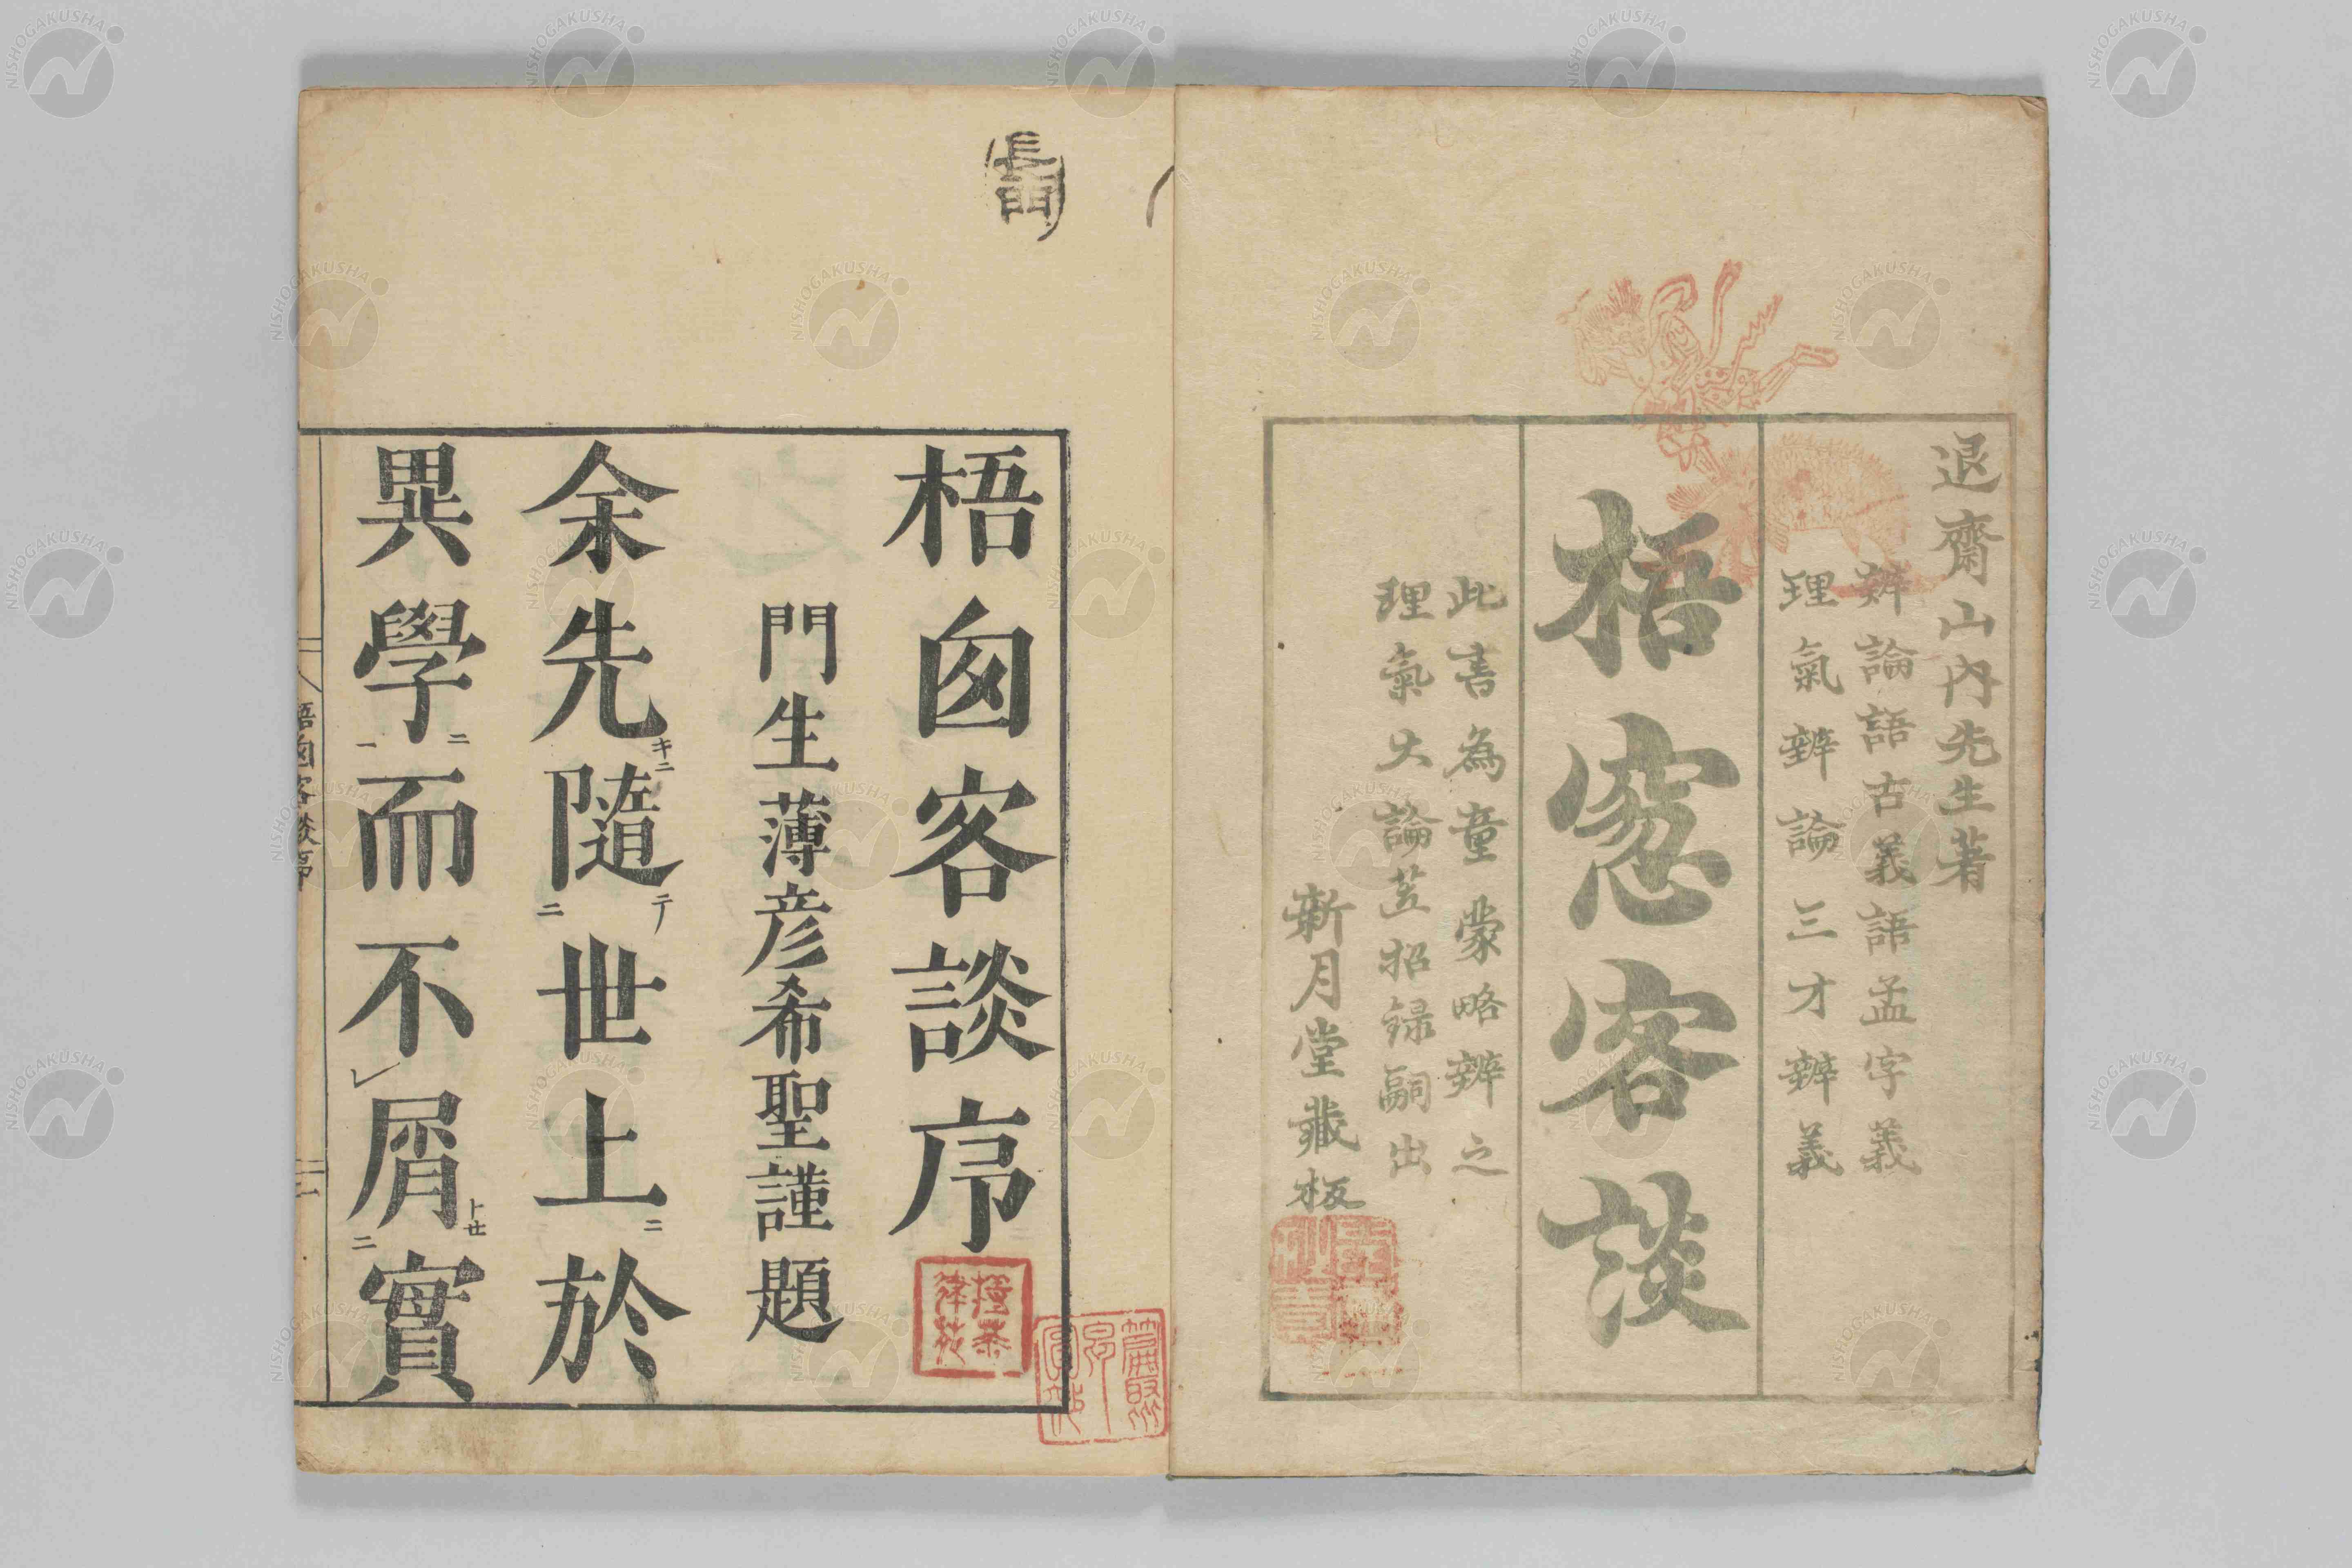 退齋山內先生著
辨論語古義語孟字義
理氣辨論三才辨義
梧窓客談
此書為童蒙略辨之
理氣大論並招録嗣出
新月堂藏板
長門
梧囱客談序
門生薄彦希聖謹題
余先キニ隨テ二世上ニ於
異學ニ一而不屑トセ二實
梧囱客談序
NISHOGAKUSHA